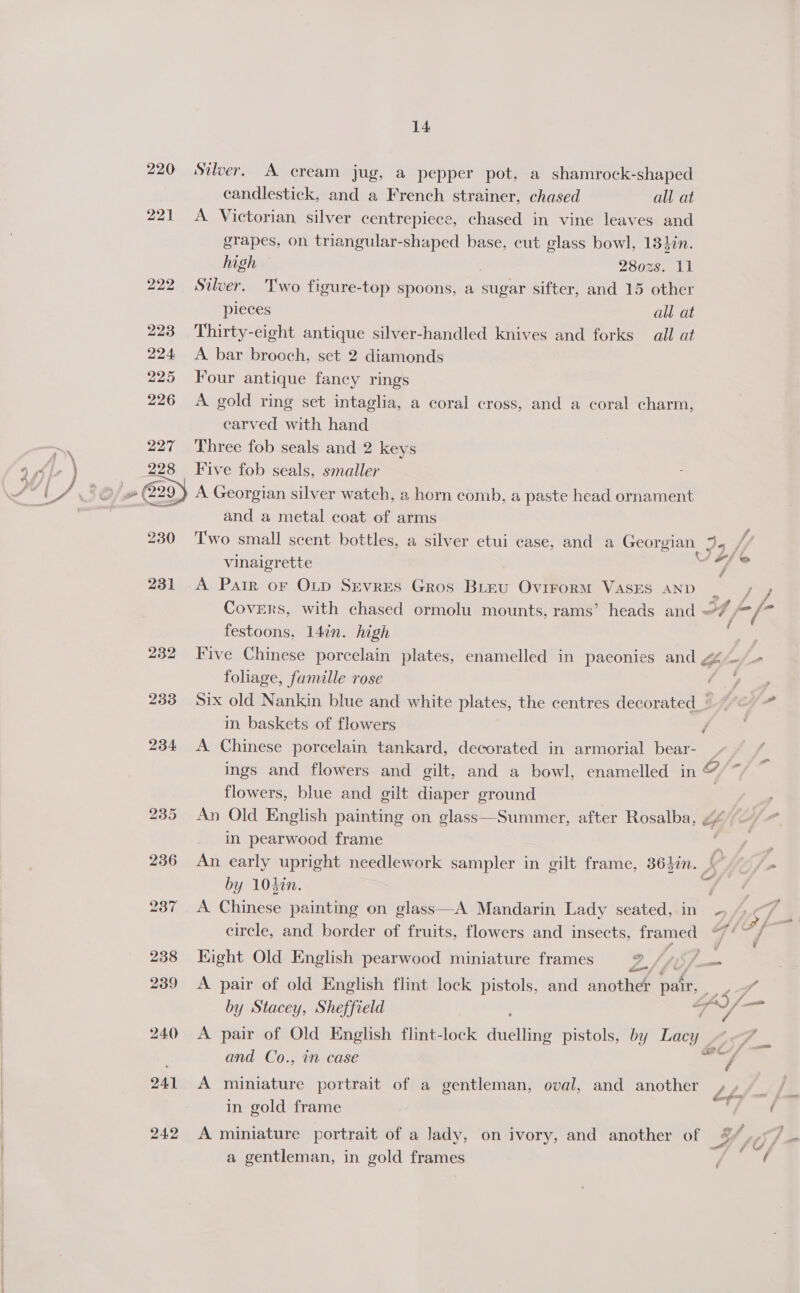 14
220 Silver. A cream jug, a pepper pot, a shamrock-shaped
candlestick, and a French strainer, chased all at
221 A Victorian silver centrepiece, chased in vine leaves and
grapes, on triangular-shaped base, cut glass bowl, 13½in.
high 28ozs. 11
222 Silver. Two figure-top spoons, a sugar sifter, and 15 other
pieces all at
223 Thirty-eight antique silver-handled knives and forks all at
224 A bar brooch, set 2 diamonds
225 Four antique fancy rings
226 A gold ring set intaglia, a coral cross, and a coral charm,
carved with hand
227 Three fob seals and 2 keys
228 Five fob seals, smaller
229 A Georgian silver watch, a horn comb, a paste head ornament
and a metal coat of arms
230 Two small scent bottles, a silver etui case, and a Georgian
vinaigrette
231 A PAIR OF OLD SEVRES GROS BLEU OVIFORM VASES AND
COVERS, with chased ormolu mounts, rams' heads and
festoons, 14in. high
232 Five Chinese porcelain plates, enamelled in paeonies and
foliage, famille rose
233 Six old Nankin blue and white plates, the centres decorated
in baskets of flowers
234 A Chinese porcelain tankard, decorated in armorial bear-
ings and flowers and gilt, and a bowl, enamelled in
flowers, blue and gilt diaper ground
235 An Old English painting on glass—Summer, after Rosalba,
in pearwood frame
236 An early upright needlework sampler in gilt frame, 36½in.
by 10½in.
237 A Chinese painting on glass—A Mandarin Lady seated, in
circle, and border of fruits, flowers and insects, framed
238 Eight Old English pearwood miniature frames
239 A pair of old English flint lock pistols, and another pair,
by Stacey, Sheffield
240 A pair of Old English flint-lock duelling pistols, by Lacy
and Co., in case
241 A miniature portrait of a gentleman, oval, and another
in gold frame
242 A miniature portrait of a lady, on ivory, and another of
a gentleman, in gold frames